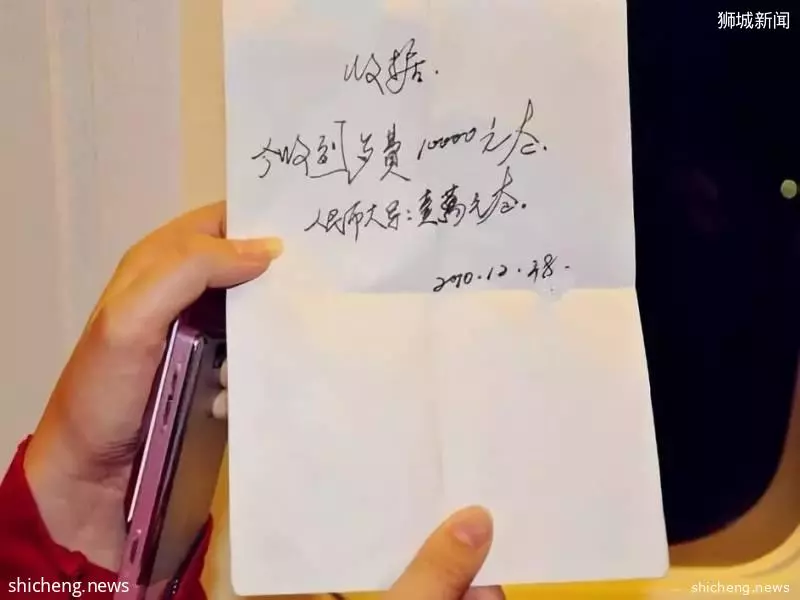 狮城新闻
收据.
今收到 费10000元在.
人民币大写:壹萬元在.
2010.12.28.
shicheng.news
shicheng.news